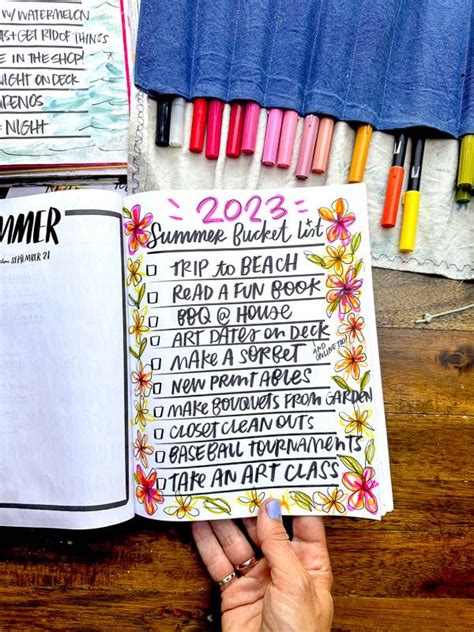 W/ WATERMELON
GET RID OF THINGS
IN THE SHOP!
NIGHT ON DECK
NIGHT
SEPTEMBER 21
2023
Summer Bucket List
TRIP to BEACH
READ A FUN BOOK
BBQ @ HOUSE
ART DATES on DECK
MAKE A SORBET
AND ONLINE TOO!
NEW PRINTABLES
MAKE BOUQUETS FROM GARDEN
CLOSET CLEAN OUTS
BASEBALL TOURNAMENTS
TAKE AN ART CLASS